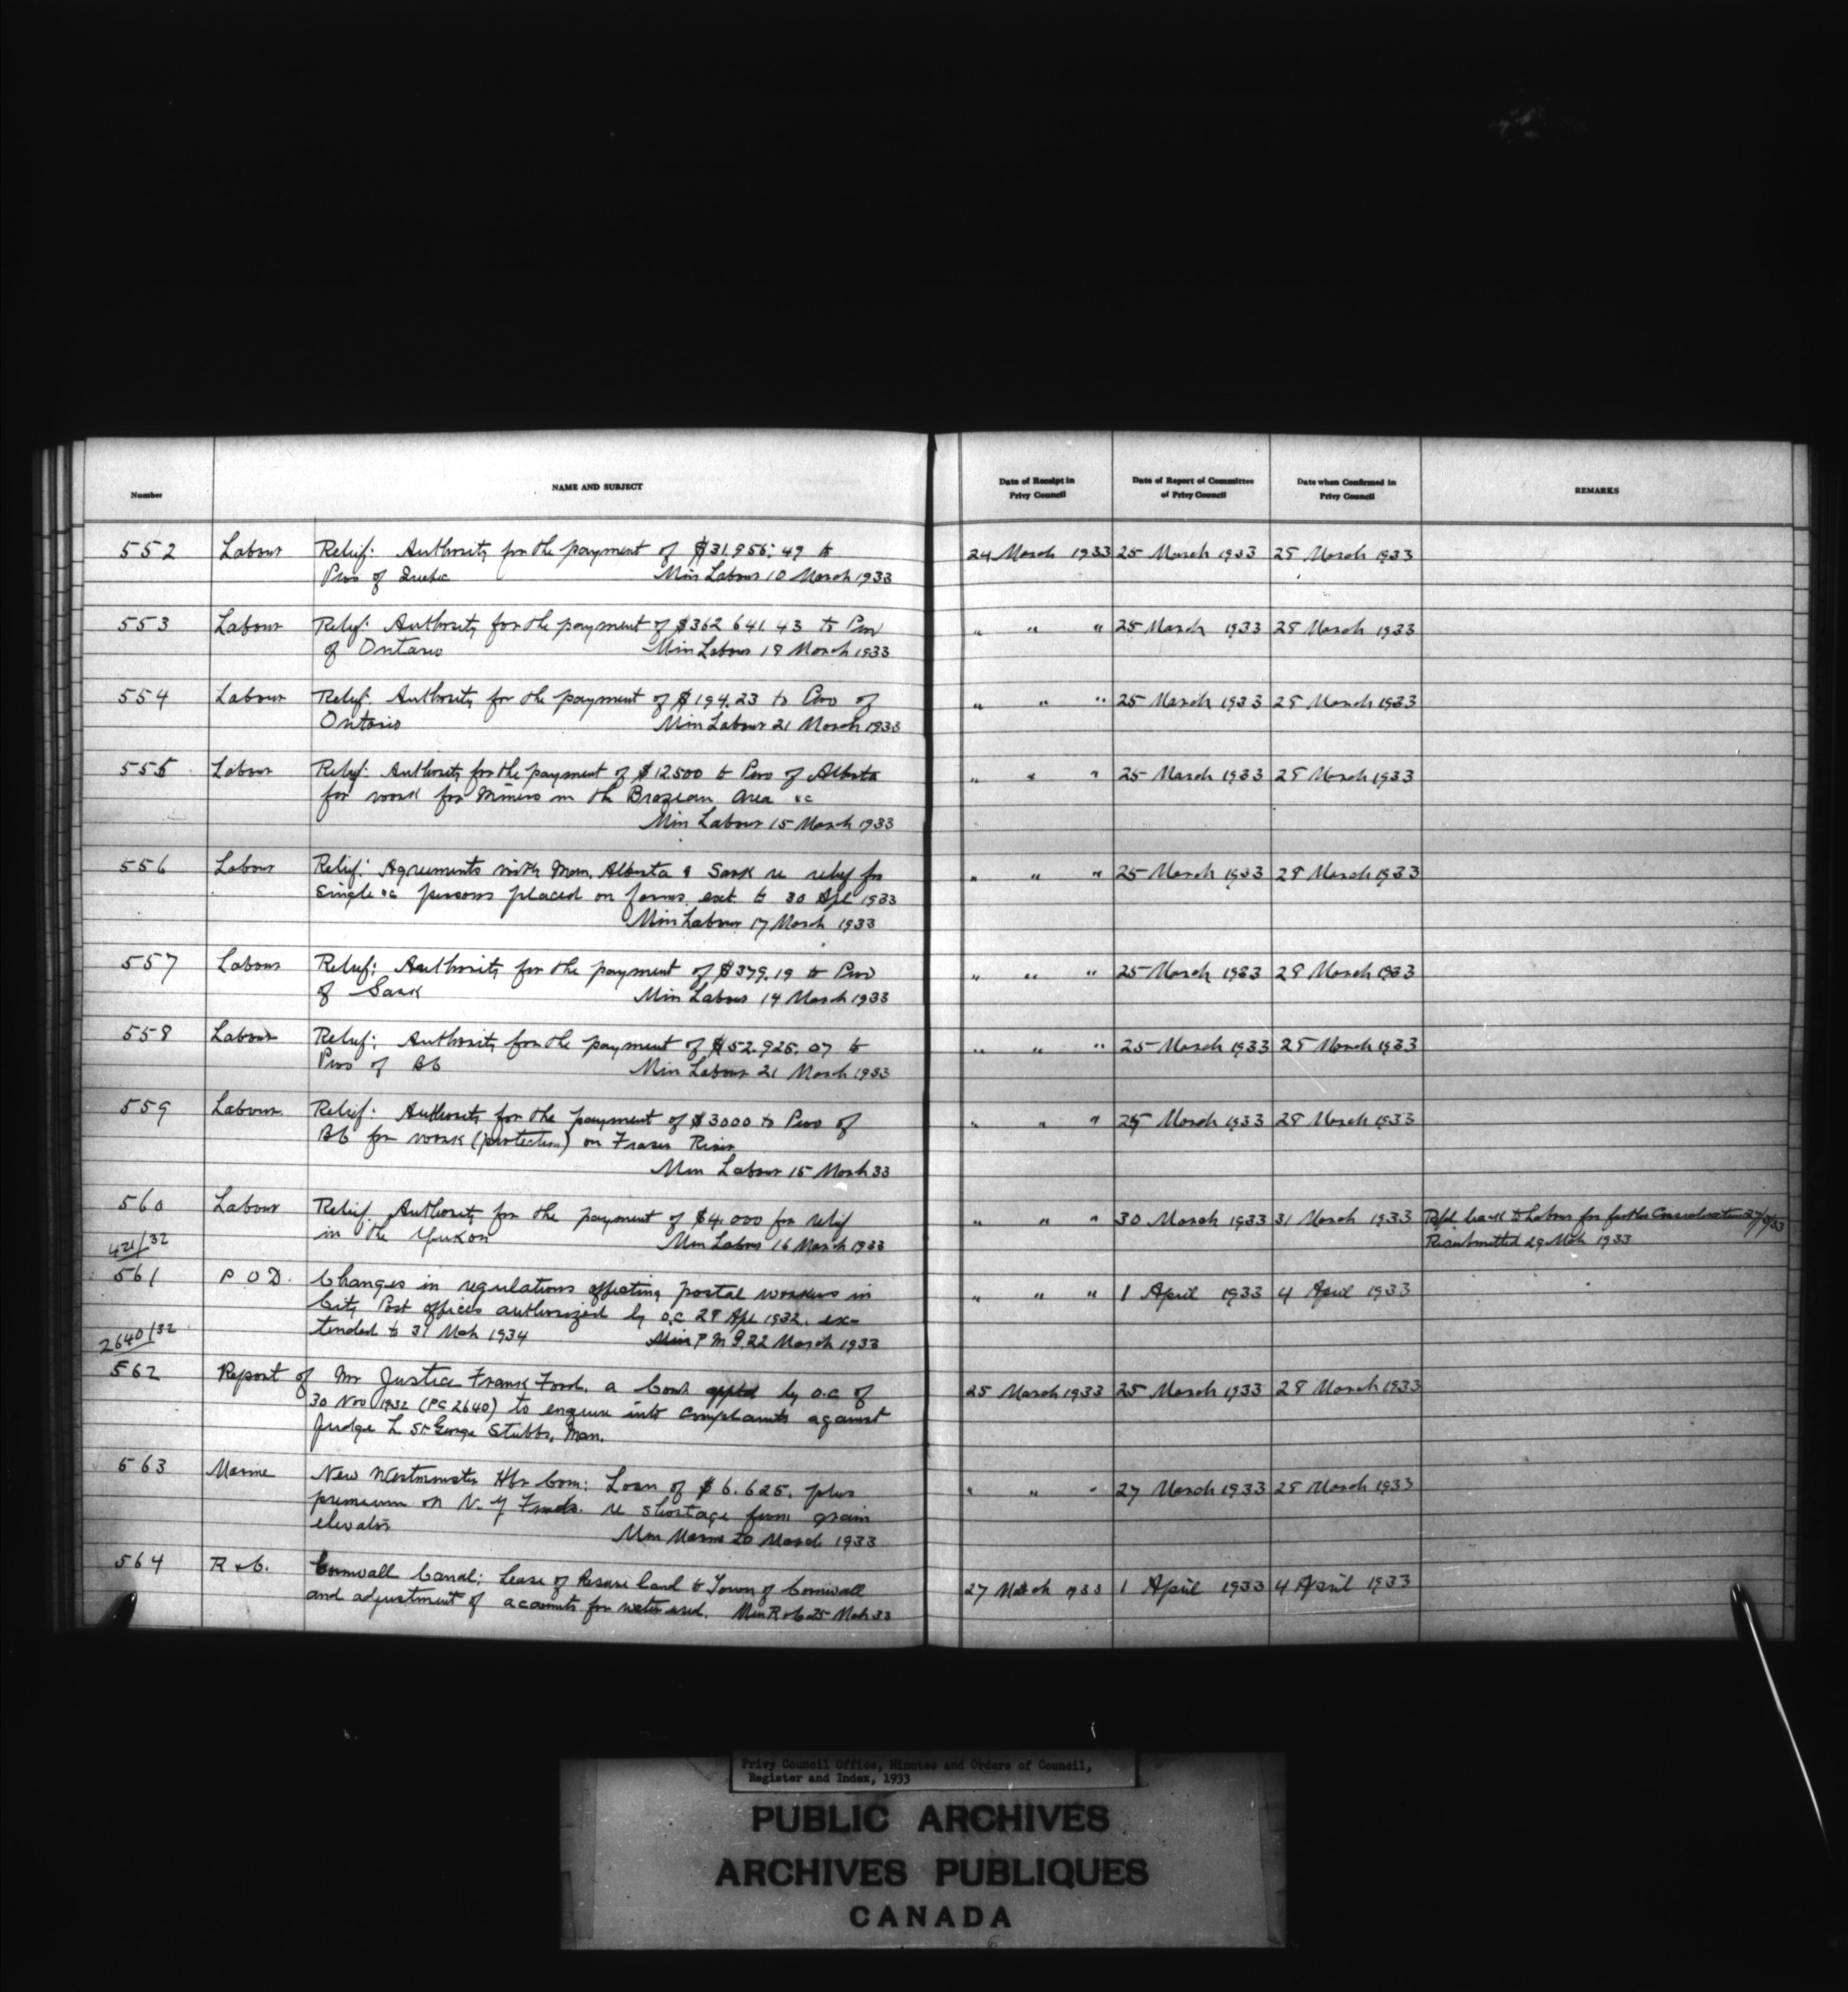 Number NAME AND SUBJECT Date of Receipt in Privy Council Date of Report of Committee of Privy Council Date when Confirmed in Privy Council REMARKS
552 Labour Relief: Authority for the payment of $31,956.49 to 24 March 1933 25 March 1933 28 March 1933
Prov of Quebec Min Labour 10 March 1933
553 Labour Relief: Authority for the payment of $362 641.43 to Prov " " " 25 March 1933 28 March 1933
of Ontario Min Labour 18 March 1933
554 Labour Relief: Authority for the payment of $194.23 to Prov of " " " 25 March 1933 28 March 1933
Ontario Min Labour 21 March 1933
555 Labour Relief: Authority for the payment of $12500 to Prov of Alberta " " " 25 March 1933 28 March 1933
for work for Miners in the Brazeau Area &c
Min Labour 15 March 1933
556 Labour Relief: Agreements with Man, Alberta & Sask re relief for " " " 25 March 1933 28 March 1933
Single &c persons placed on farms, ext to 30 Apl 1933
Min Labour 17 March 1933
557 Labour Relief: Authority for the payment of $379.19 to Prov " " " 25 March 1933 28 March 1933
of Sask Min Labour 14 March 1933
558 Labour Relief: Authority for the payment of $52,925.07 to " " " 25 March 1933 28 March 1933
Prov of BC Min Labour 21 March 1933
559 Labour. Relief: Authority for the payment of $3000 to Prov of " " " 25 March 1933 28 March 1933
BC for work (protection) on Fraser River
Min Labour 15 March 33
560 Labour Relief Authority for the payment of $4,000 for relief " " " 30 March 1933 31 March 1933 Refd back to Labour for further Consideration
in the Yukon Min Labour 16 March 1933 Resubmitted 29 Mch 1933
421/32
561 P O D. Changes in regulations affecting postal workers in " " " 1 April 1933 4 April 1933
City Post offices authorized by O.C 28 Apl 1932, ex-
tended to 31 Mch 1934 Min P M G 22 March 1933
2640/32
562 Report of Mr Justice Frank Ford, a Comr apptd by O.C of 25 March 1933 25 March 1933 28 March 1933
30 Nov 1932 (PC 2640) to enquire into Complaints against
Judge L St George Stubbs, Man.
563 Marine New Westminster Hbr Com: Loan of $6,625. plus " " " 27 March 1933 28 March 1933
premium on N.Y Funds. re shortage from grain
elevator Min Marine 20 March 1933
564 R & C. Cornwall Canal: Lease of Reserve land to Town of Cornwall 27 March 1933 1 April 1933 4 April 1933
and adjustment of accounts for water used. Min R & C 25 Mch 33
Privy Council Office, Minutes and Orders of Council,
Register and Index, 1933
PUBLIC ARCHIVES
ARCHIVES PUBLIQUES
CANADA